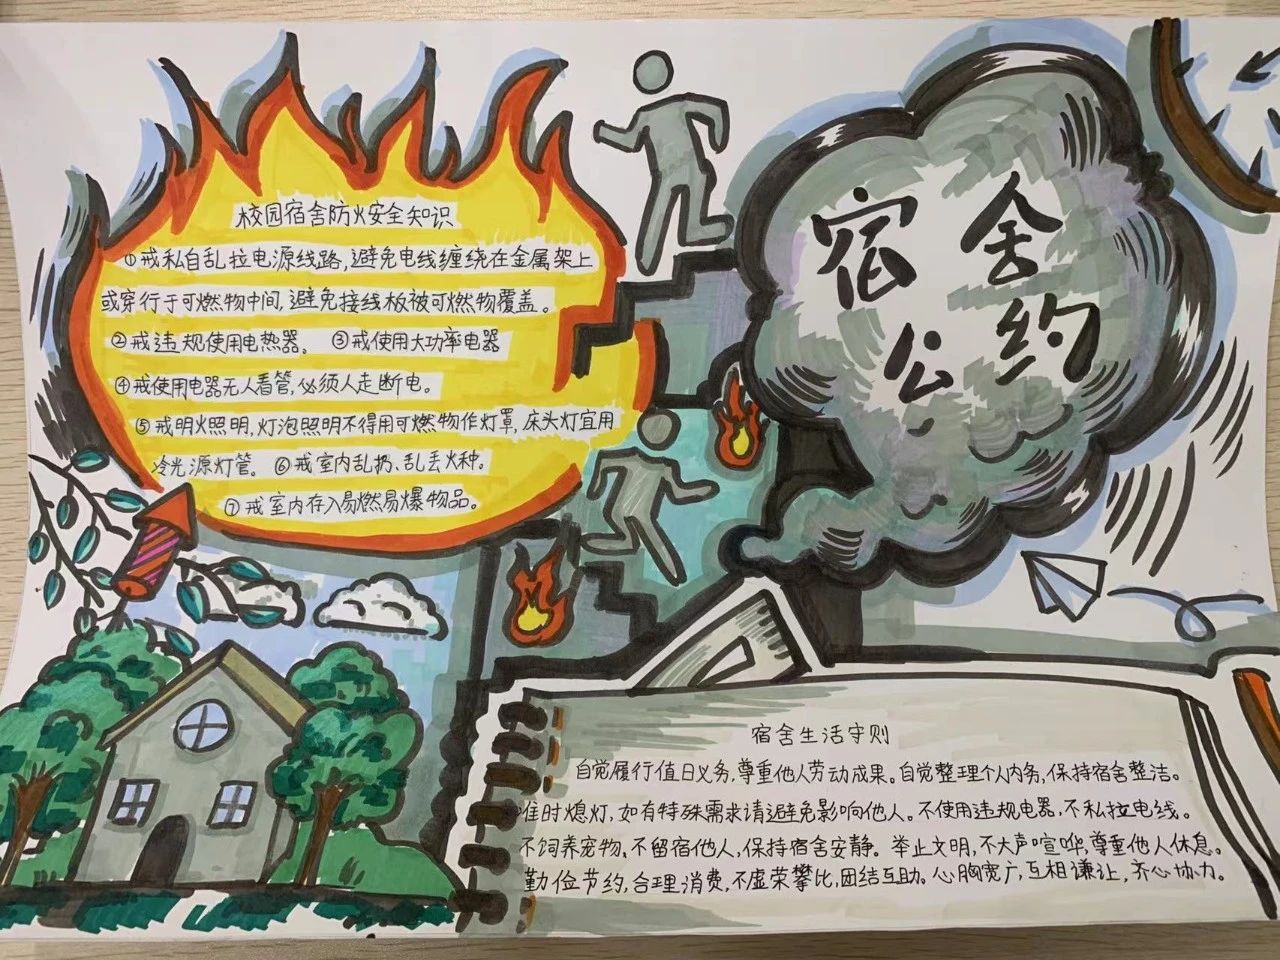 校园宿舍防火安全知识
①戒私自乱拉电源线路,避免电线缠绕在金属架上
或穿行于可燃物中间,避免接线板被可燃物覆盖。
②戒违规使用电热器。 ③戒使用大功率电器
④戒使用电器无人看管,必须人走断电。
⑤戒明火照明,灯泡照明不得用可燃物作灯罩,床头灯宜用
冷光源灯管。 ⑥戒室内乱扔、乱丢火种。
⑦戒室内存入易燃易爆物品。
宿舍
公约
宿舍生活守则
自觉履行值日义务,尊重他人劳动成果。自觉整理个人内务,保持宿舍整洁。
准时熄灯,如有特殊需求请避免影响他人。不使用违规电器,不私拉电线。
不饲养宠物、不留宿他人,保持宿舍安静。举止文明,不大声喧哗,尊重他人休息。
勤俭节约,合理消费,不虚荣攀比,团结互助。心胸宽广,互相谦让,齐心协力。